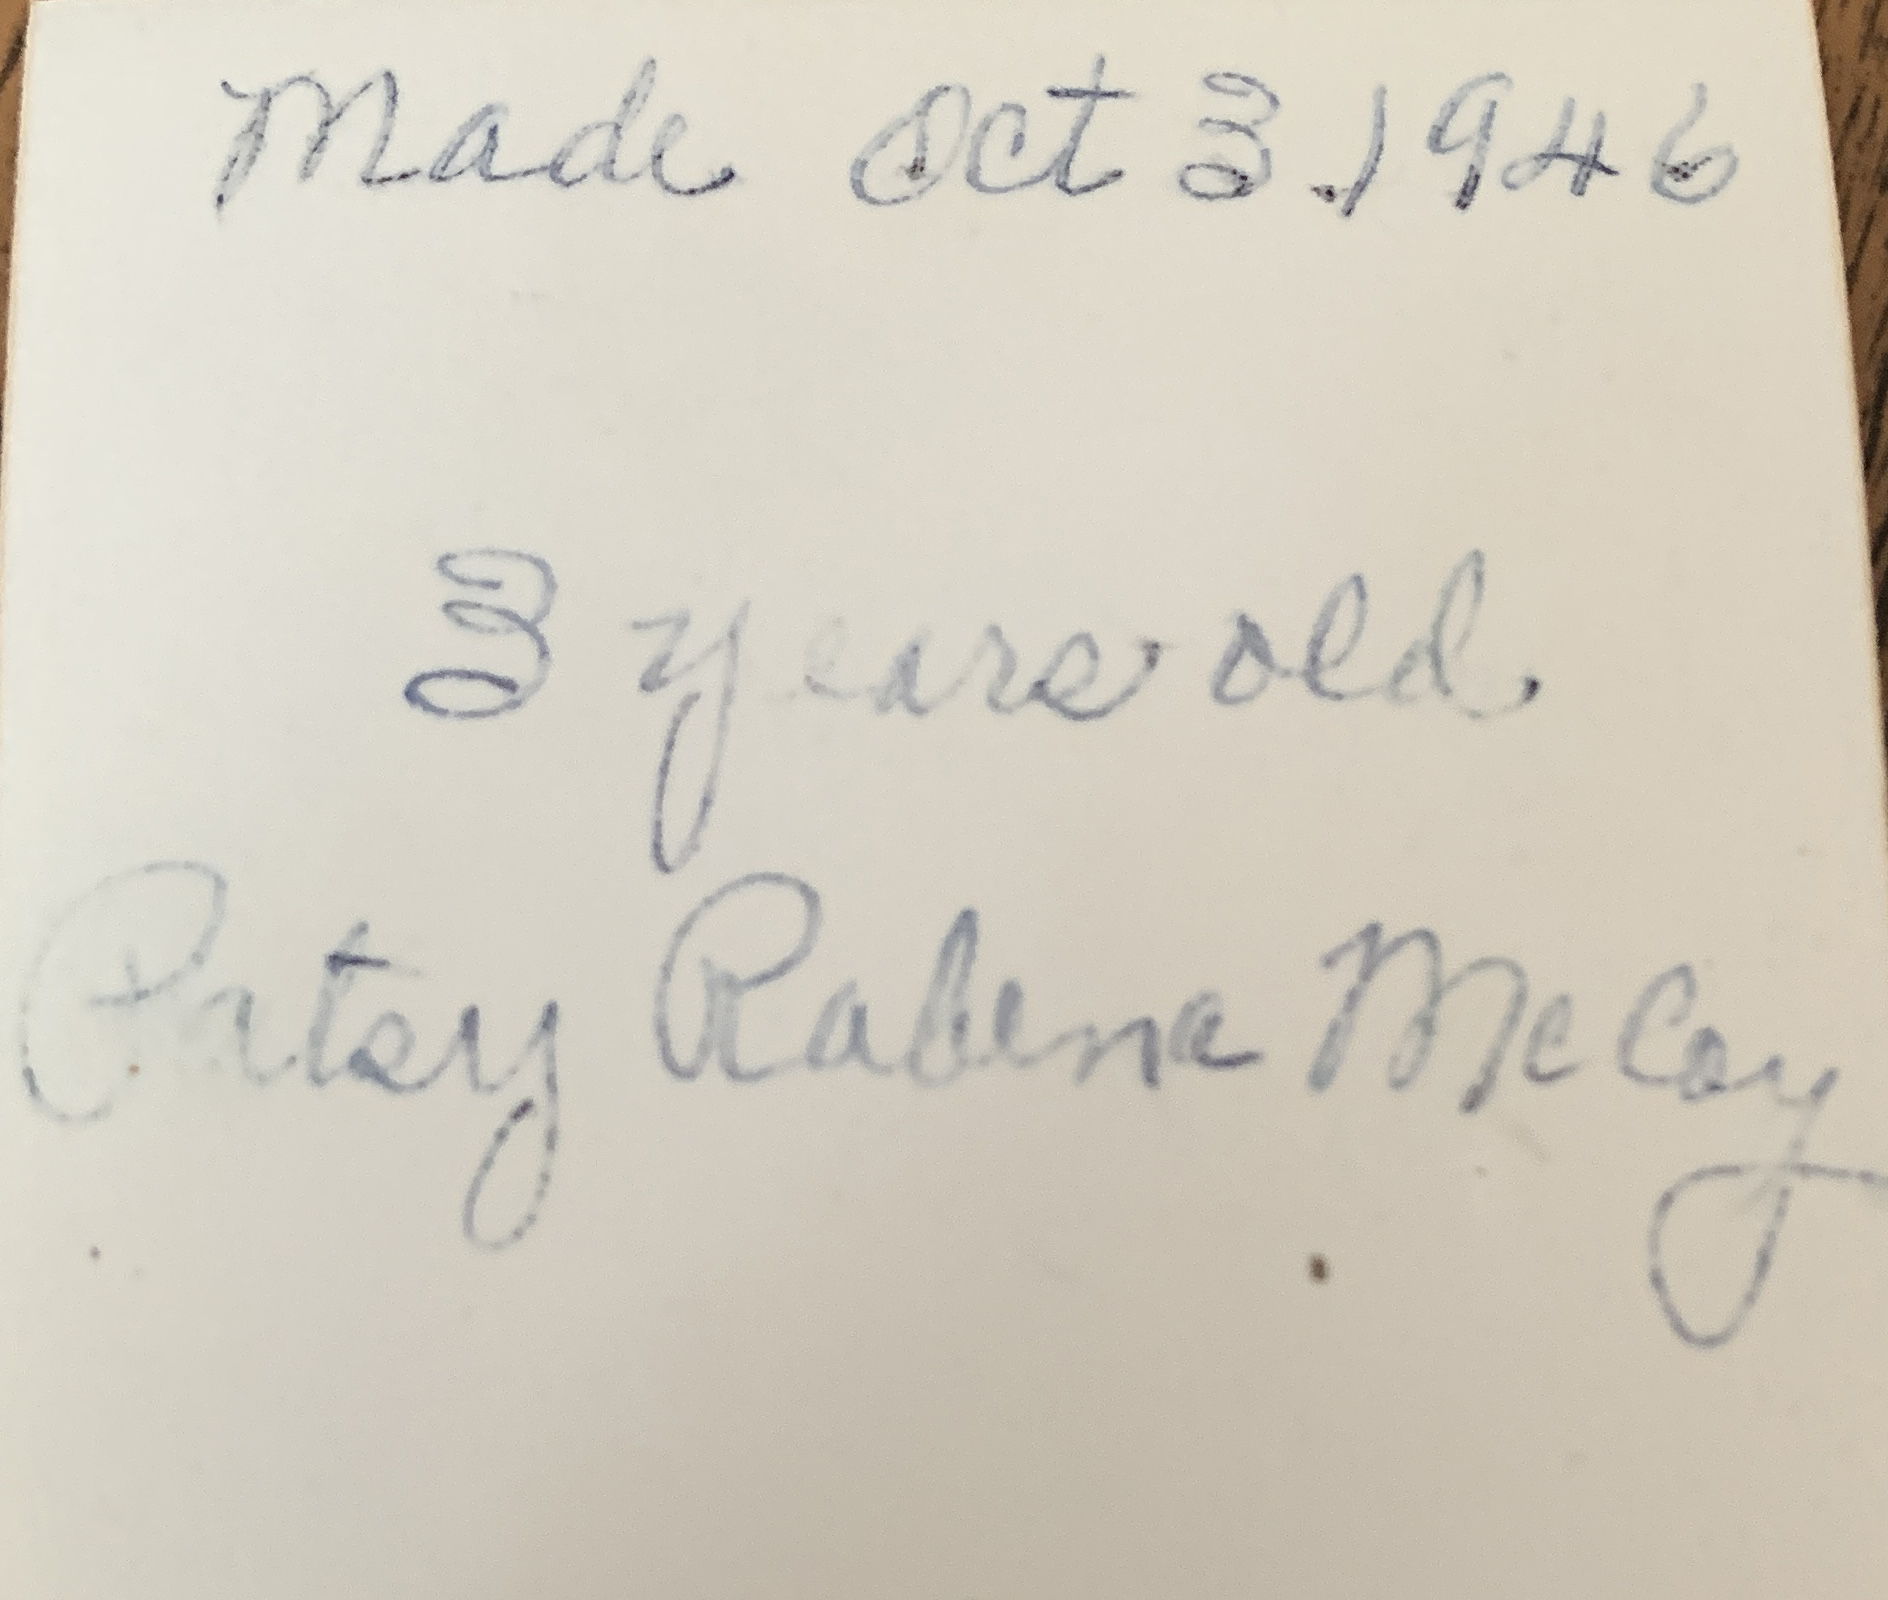 Made Oct 3.1946
3 years old.
Patsy Rabena McCoy